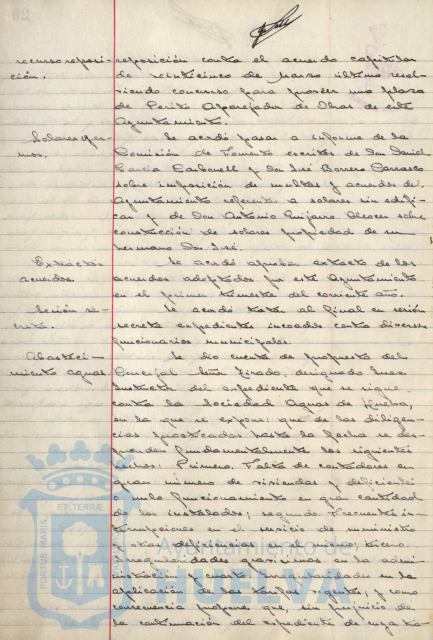 recurso reposi-
ción.
reposición contra el acuerdo capitular
de veinticinco de marzo último resol-
viendo concurso para proveer una plaza
de Perito Aparejador de Obras de este
Ayuntamiento.
Solares yer-
mos.
Se acordó pasar a informe de la
Comisión de Fomento escritos de Don Daniel
García Carbonell y Don José Borrero Carrasco
sobre imposición de multas y acuerdos del
Ayuntamiento referente a solares sin edifi-
car y de Don Antonio sobre
construcción de solares propiedad de su
hermano Don José.
Extractos
acuerdos.
Se acordó aprobar extracto de los
acuerdos adoptados por este Ayuntamiento
en el primer trimestre del corriente año.
Sesión se-
creta.
Se acordó tratar al final en sesión
secreta expedientes incoados contra diversos
funcionarios municipales.
Abasteci-
miento aguas.
Se dio cuenta de propuesta del
Concejal Señor Tirado, designado Juez
Instructor del expediente que se sigue
contra la Sociedad Aguas de Huelva,
en la que se expone: que de las diligen-
cias practicadas hasta la fecha se des-
prenden fundamentalmente los siguientes
hechos: Primero. Falta de contadores en
gran número de viviendas y deficiente
o nulo funcionamiento en gran cantidad
de los instalados; segundo. Frecuentes in-
terrupciones en el servicio de suministro
y otras deficiencias del mismo; tercero.
Irregularidades gravísimas en la admi-
nistración y cuarto. Irregularidades en la
aplicación de las tarifas vigentes; y como
consecuencia propone que, sin perjuicio de
la continuación del expediente de cuya tra-
PORTUS MARIS
ET TERRAE
Ayuntamiento de
HUELVA